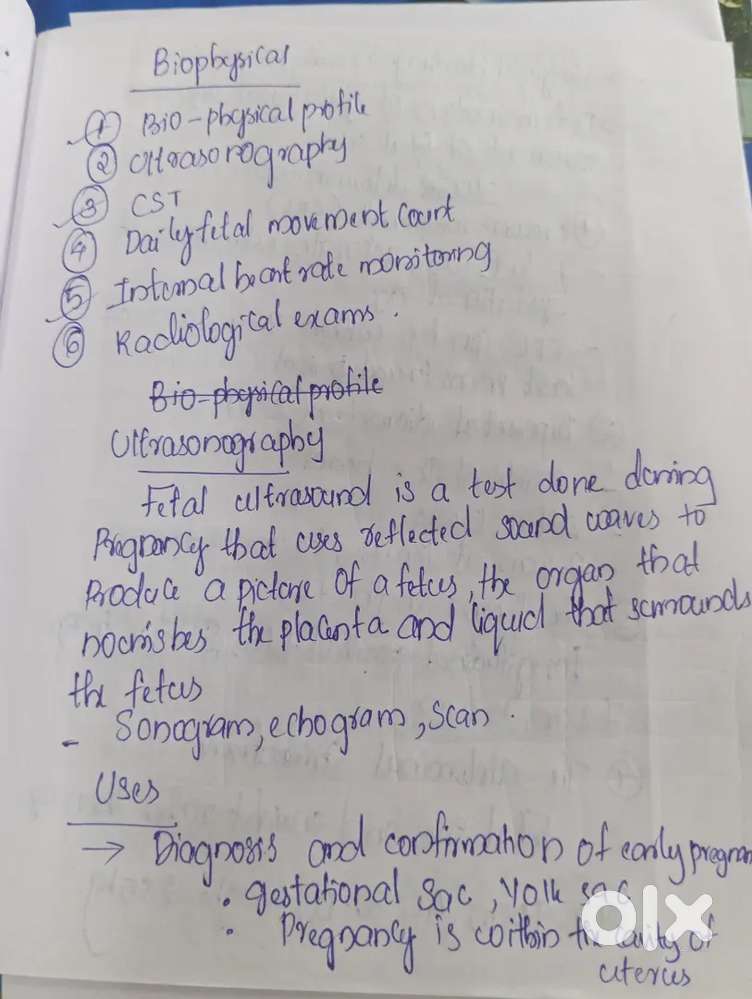 Biophysical
① Bio-physical profile
② Ultrasonography
③ CST
④ Daily fetal movement count
⑤ Internal heart rate monitoring
⑥ Radiological exams.
Bio-physical profile
Ultrasonography
Fetal ultrasound is a test done during
Pregnancy that uses reflected sound waves to
Produce a picture of a fetus, the organ that
nourishes the placenta and liquid that surrounds
the fetus
- Sonogram, echogram, Scan.
Uses
→ Diagnosis and confirmation of early pregnan
• gestational Sac, Yolk sac
• Pregnancy is within the cavity of
uterus
olx